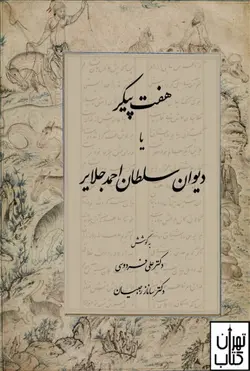 هفت پیکر
یا
دیوان سلطان احمد جلایر
به کوشش
دکتر علی فردوسی
دکتر ساناز رجبیان
تهران
کتاب